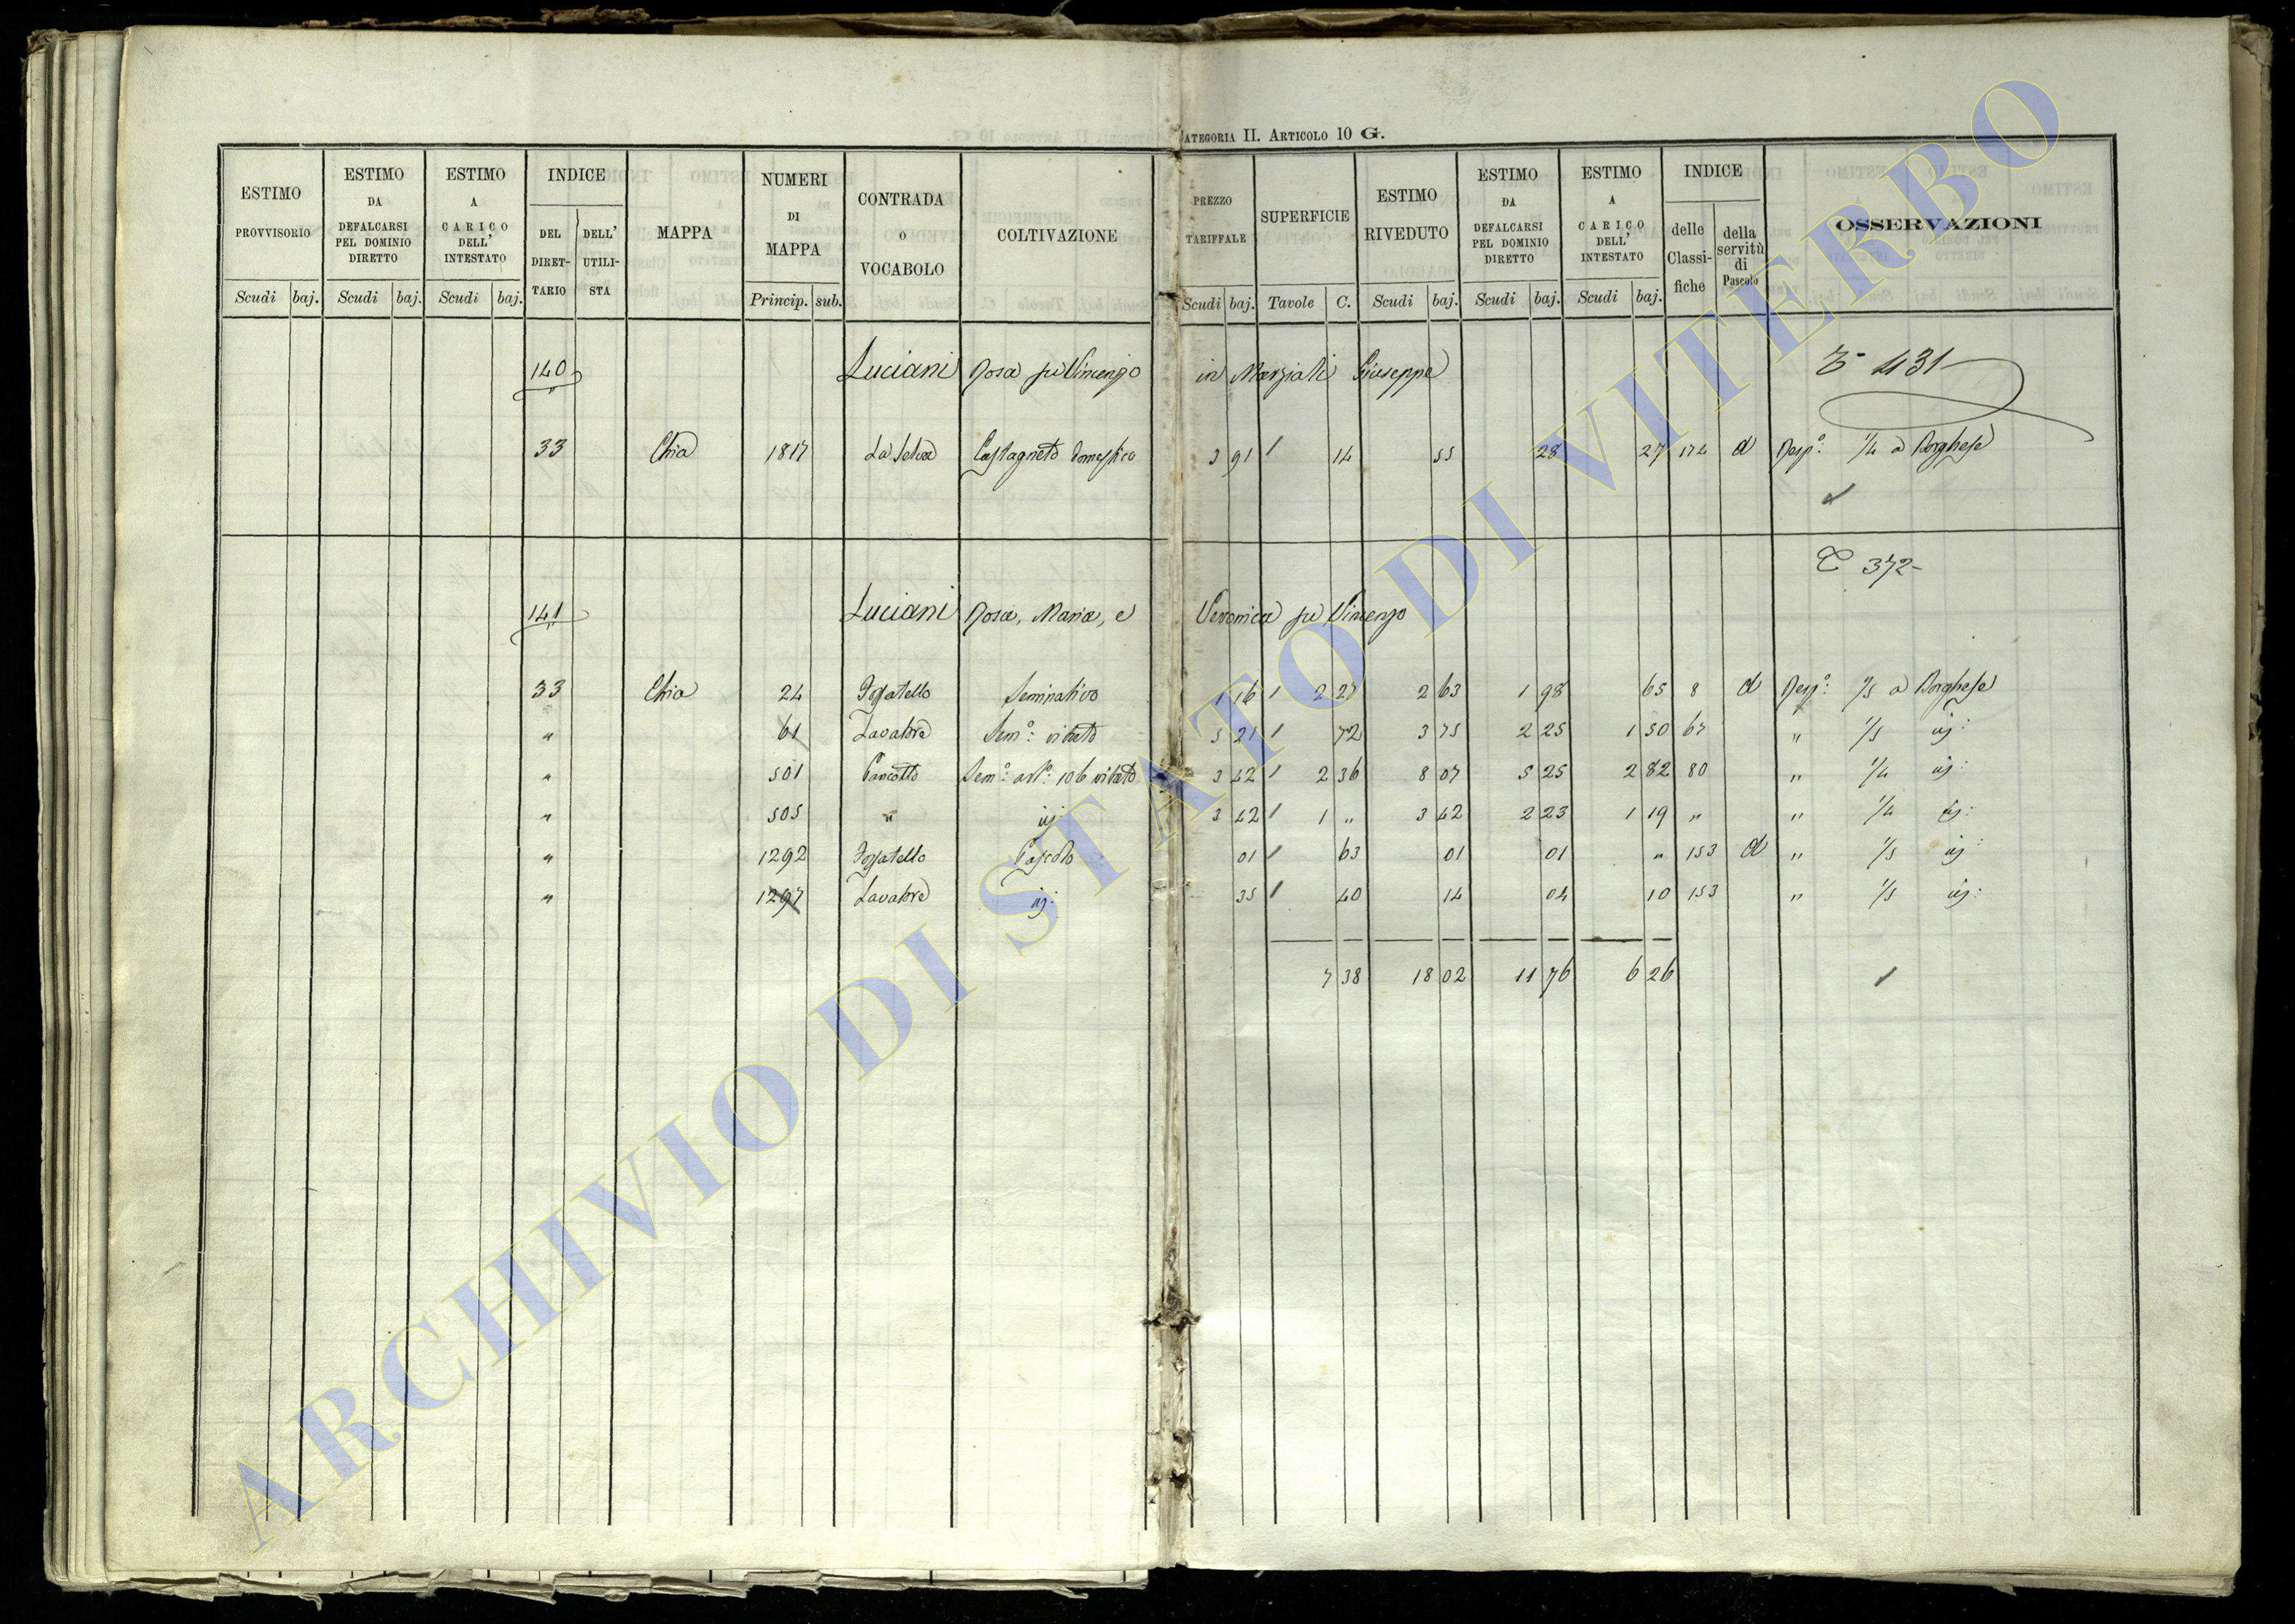 CATEGORIA II. ARTICOLO 10 G.
ESTIMO PROVVISORIO Scudi baj. | ESTIMO DA DEFALCARSI PEL DOMINIO DIRETTO Scudi baj. | ESTIMO A CARICO DELL' INTESTATO Scudi baj. | INDICE DEL DIRET-TARIO | DELL' UTILI-STA | MAPPA | NUMERI DI MAPPA Princip. sub. | CONTRADA o VOCABOLO | COLTIVAZIONE | PREZZO TARIFFALE Scudi baj. | SUPERFICIE Tavole C. | ESTIMO RIVEDUTO Scudi baj. | ESTIMO DA DEFALCARSI PEL DOMINIO DIRETTO Scudi baj. | ESTIMO A CARICO DELL' INTESTATO Scudi baj. | INDICE delle Classi-fiche | della servitù di Pascolo | OSSERVAZIONI
140 Luciani Rosa fu Vincenzo in Marziali Giuseppe 431
33 Chia 1817 La Selva Castagneto domestico 3 91 1 14 55 28 27 174 d Resp.e: 1/4 a Borghese
372
141 Luciani Rosa, Maria, e Veronica fu Vincenzo
33 Chia 24 Fossatello Seminativo 1 16 1 2 27 2 63 1 98 65 8 d Resp.e: 1/5 a Borghese
" 61 Lavatore Sem.o: vitato 5 21 1 72 3 75 2 25 1 50 67 " 1/5 iij:
" 501 Pancotto Sem.o: art.o: 106 vitato 3 42 1 2 36 8 07 5 25 2 82 80 " 1/4 iij:
" 505 " iij: 3 42 1 1 " 3 42 2 23 1 19 " " 1/4 iij:
" 1292 Fossatello Pascolo 01 1 63 01 01 " 153 d " 1/5 iij:
" 1297 Lavatore iij: 35 1 40 14 04 10 153 " 1/5 iij:
7 38 18 02 11 76 6 26
ARCHIVIO DI STATO DI VITERBO